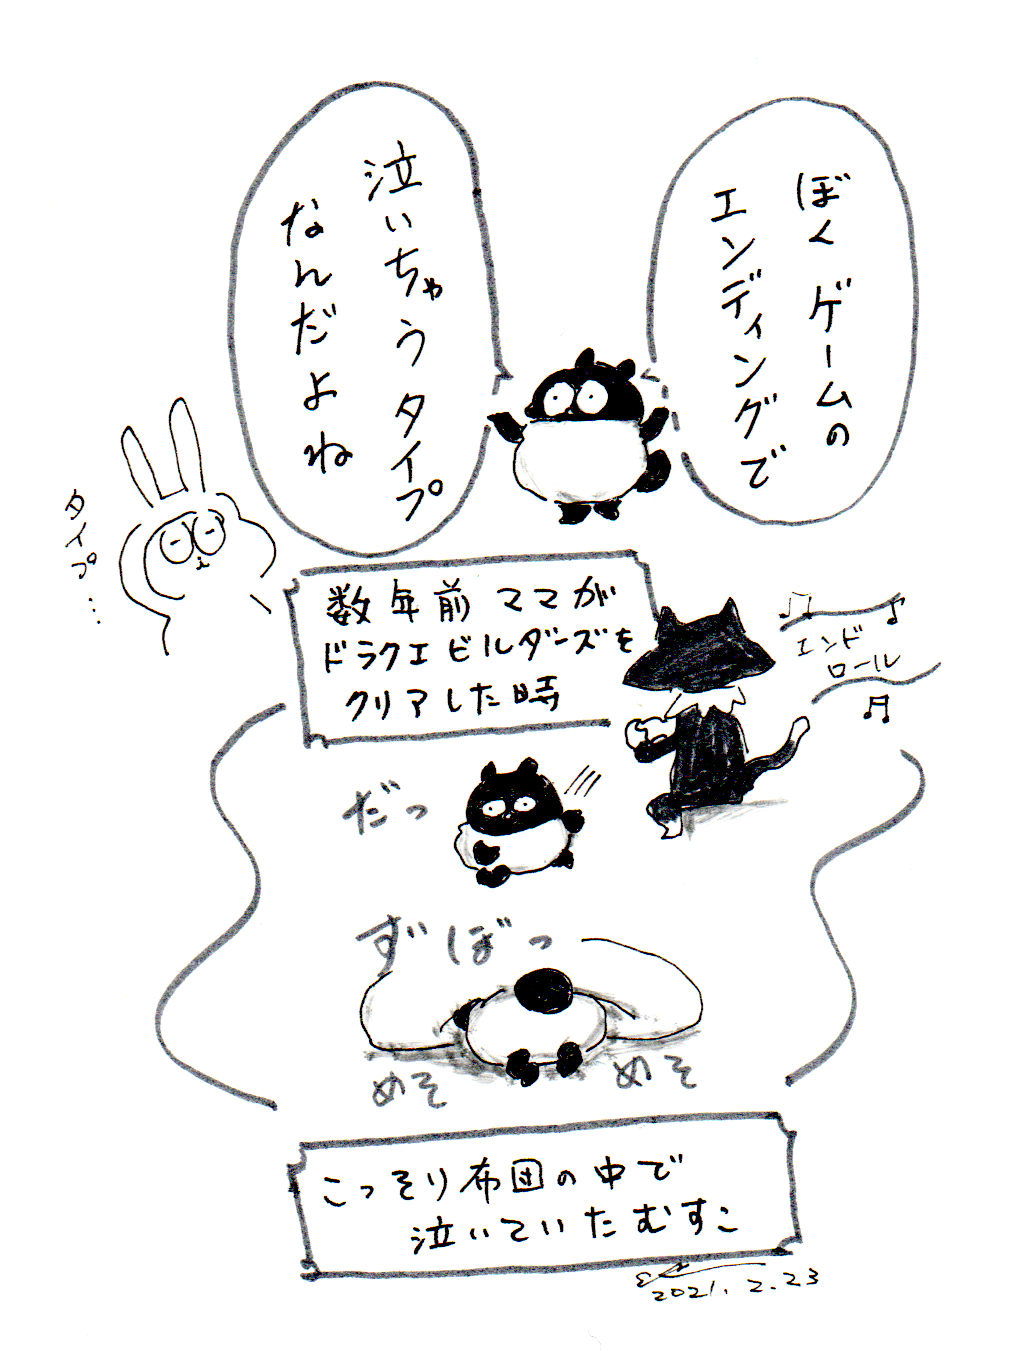 ぼく ゲームの
エンディングで
泣いちゃうタイプ
なんだよね
タイプ…
数年前ママが
ドラクエビルダーズを
クリアした時
エンド
ロール
だっ
ずぼっ
めそ
めそ
こっそり布団の中で
泣いていたむすこ
2021.2.23